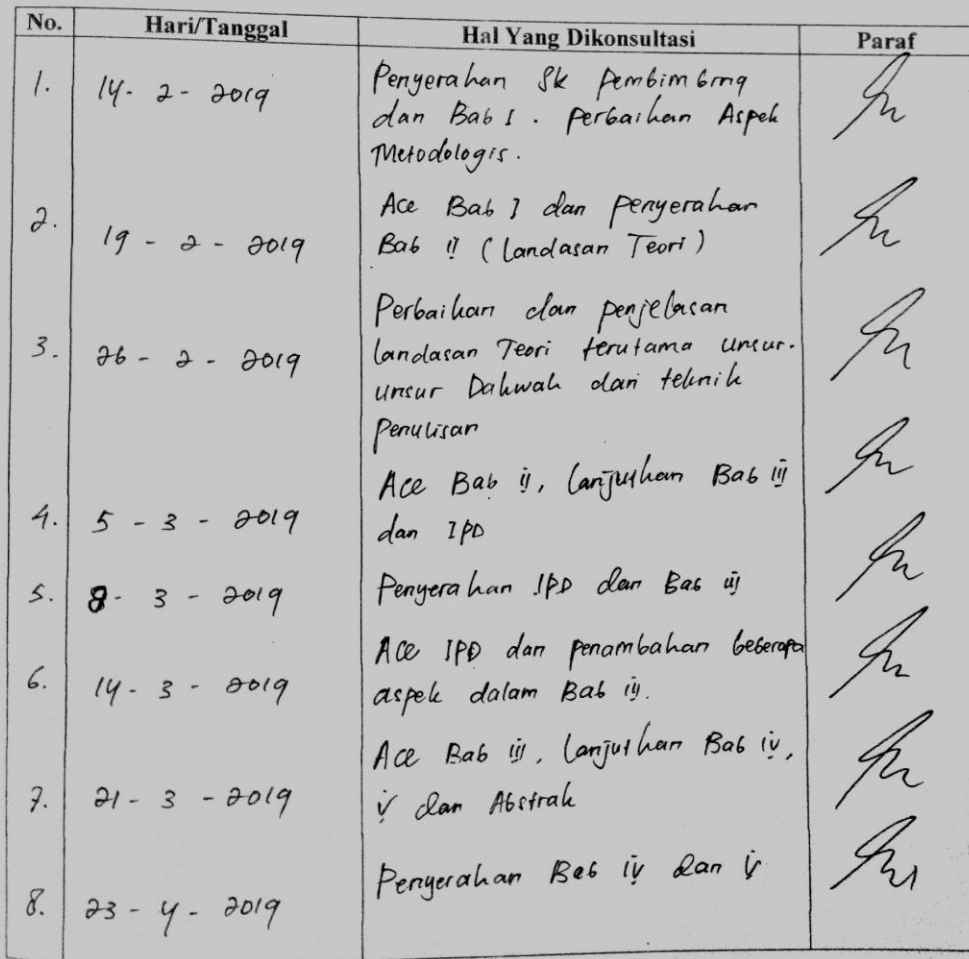 No. Hari/Tanggal Hal Yang Dikonsultasi Paraf
1. 14-2-2019 Penyerahan Sk Pembimbing
dan Bab I. perbaikan Aspek
Metodologis.
2. 19-2-2019 Acc Bab I dan penyerahan
Bab II (Landasan Teori)
3. 26-2-2019 Perbaikan dan penjelasan
landasan Teori terutama unsur-
unsur Dakwah dan teknik
Penulisan
4. 5-3-2019 Acc Bab ii, lanjutkan Bab iii
dan IPD
5. 8-3-2019 Penyerahan IPD dan Bab iii
6. 14-3-2019 Acc IPD dan penambahan beberapa
aspek dalam Bab iii.
7. 21-3-2019 Acc Bab iii, lanjutkan Bab iv,
v dan Abstrak
8. 23-4-2019 Penyerahan Bab iv dan v